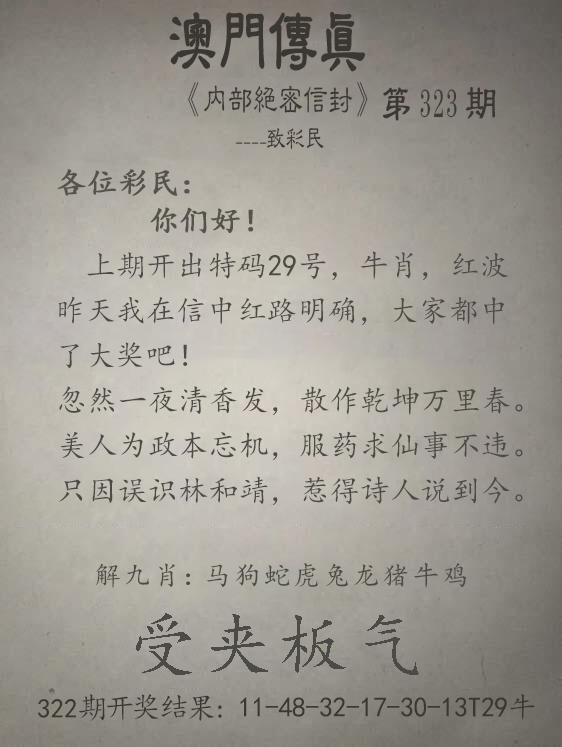 澳門傳真
《内部絕密信封》第323期
----致彩民
各位彩民：
你们好！
上期开出特码29号，牛肖，红波
昨天我在信中红路明确，大家都中
了大奖吧！
忽然一夜清香发，散作乾坤万里春。
美人为政本忘机，服药求仙事不违。
只因误识林和靖，惹得诗人说到今。
解九肖：马狗蛇虎兔龙猪牛鸡
受夹板气
322期开奖结果：11-48-32-17-30-13T29牛